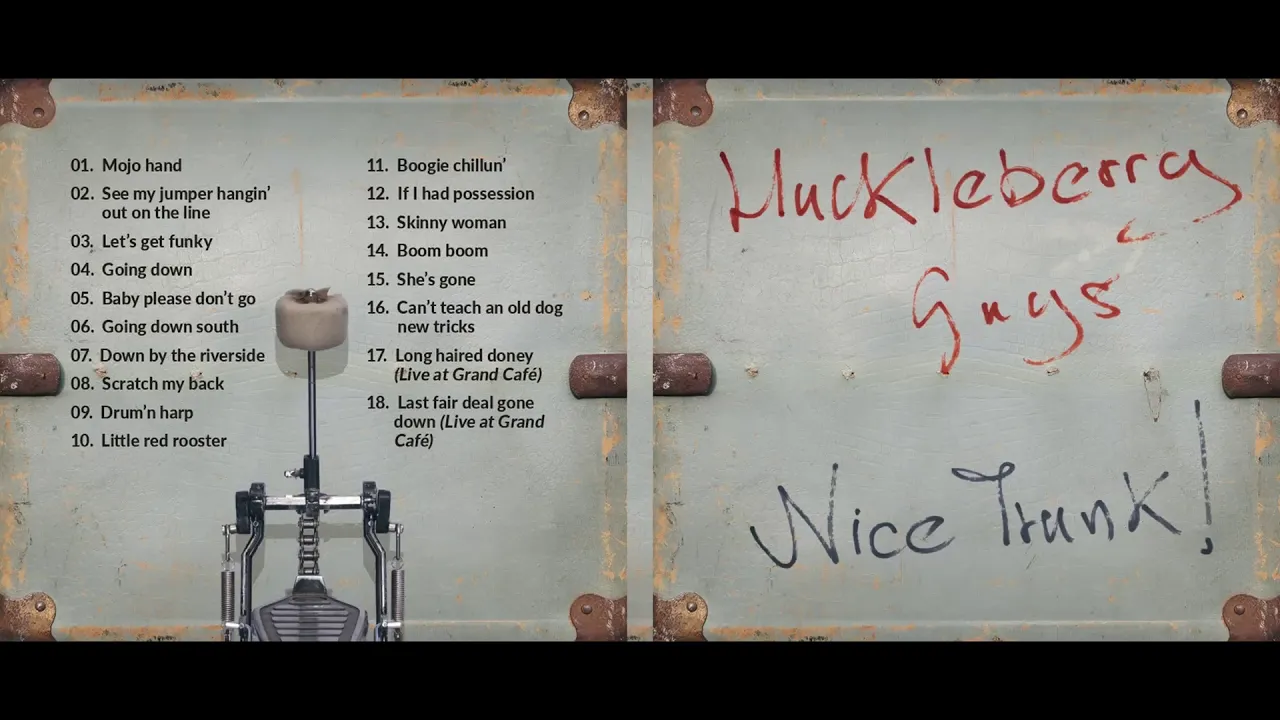 01. Mojo hand
02. See my jumper hangin’
out on the line
03. Let’s get funky
04. Going down
05. Baby please don’t go
06. Going down south
07. Down by the riverside
08. Scratch my back
09. Drum’n harp
10. Little red rooster
11. Boogie chillun’
12. If I had possession
13. Skinny woman
14. Boom boom
15. She’s gone
16. Can’t teach an old dog
new tricks
17. Long haired doney
(Live at Grand Café)
18. Last fair deal gone
down (Live at Grand
Café)
Huckleberry
Guys
Nice Trunk!